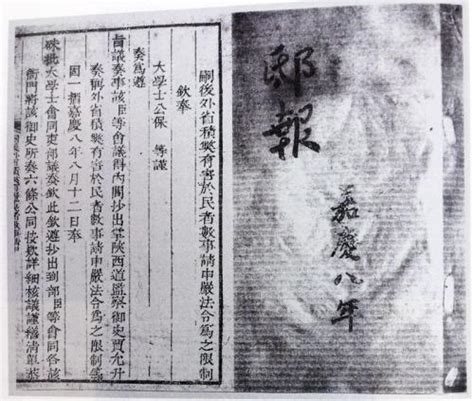 邸報
嘉慶八年
嗣後外省積弊有害於民者數事請申嚴法令為之限制
欽奉
大學士公保 等謹
奏為遵
旨議奏事該臣等會議得內閣抄出掌陝西道監察御史賈允升
奏稱外省積弊有害於民者數事請申嚴法令為之限制等
因一摺嘉慶八年八月十二日奉
硃批大學士會同吏部議奏欽此欽遵抄出到部臣等會同各該
衙門將該御史所奏六條公同按款詳細核議謹繕清單恭